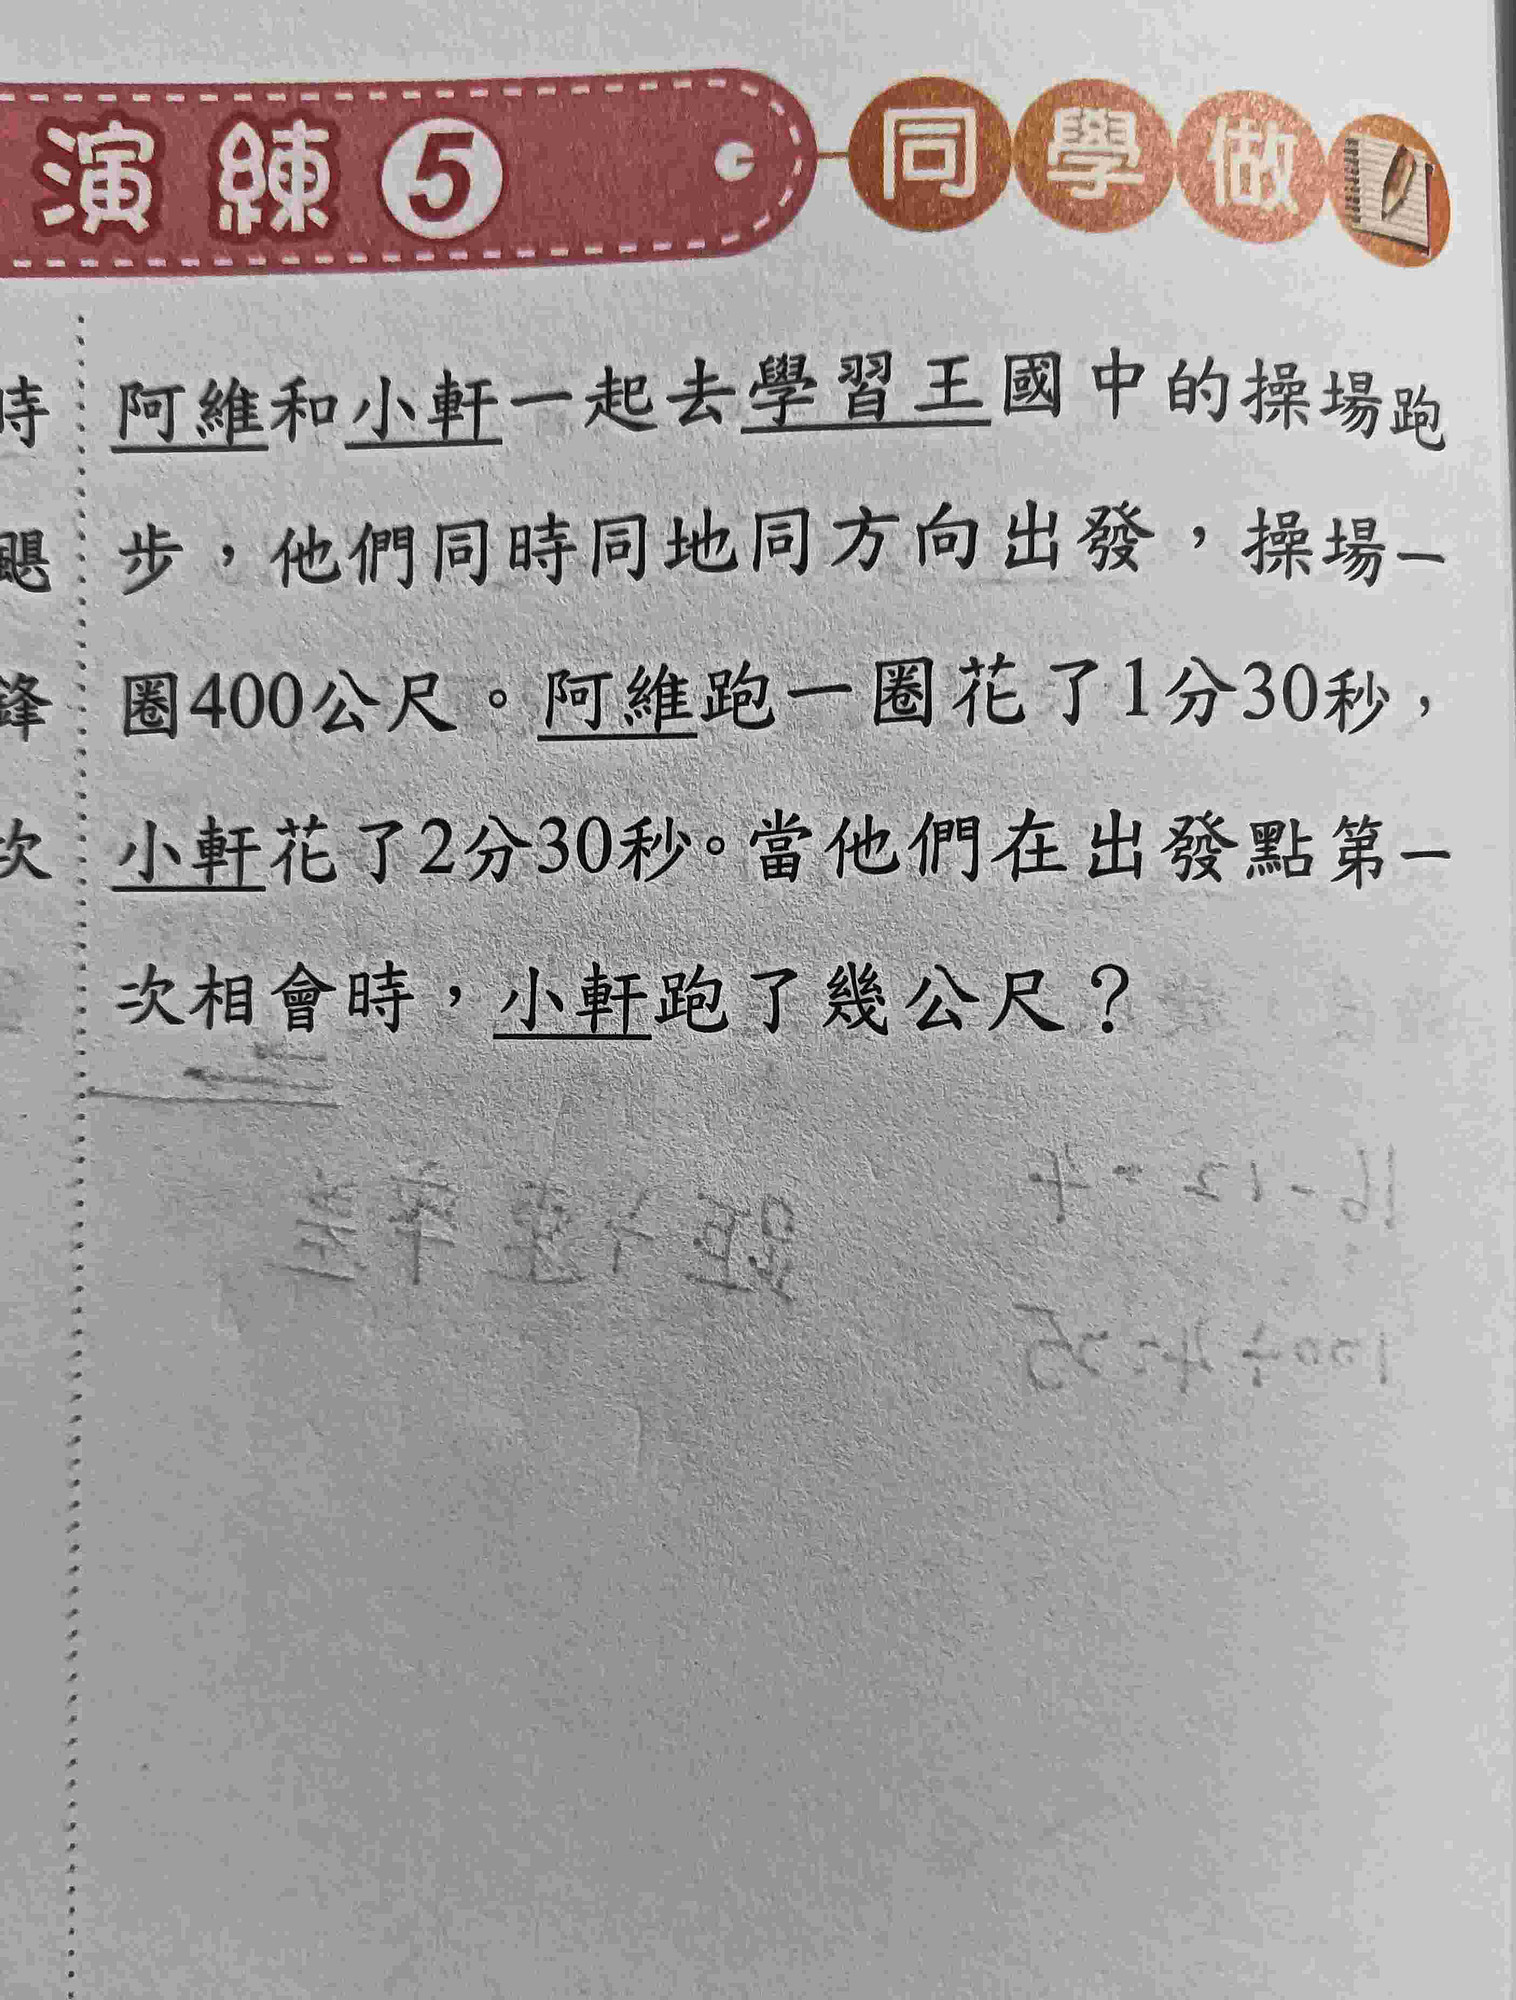 演練5 同學做
時 阿維和小軒一起去學習王國中的操場跑
颶 步，他們同時同地同方向出發，操場一
鋒 圈400公尺。阿維跑一圈花了1分30秒，
次 小軒花了2分30秒。當他們在出發點第一
次相會時，小軒跑了幾公尺？
16-12=4
100÷4=25